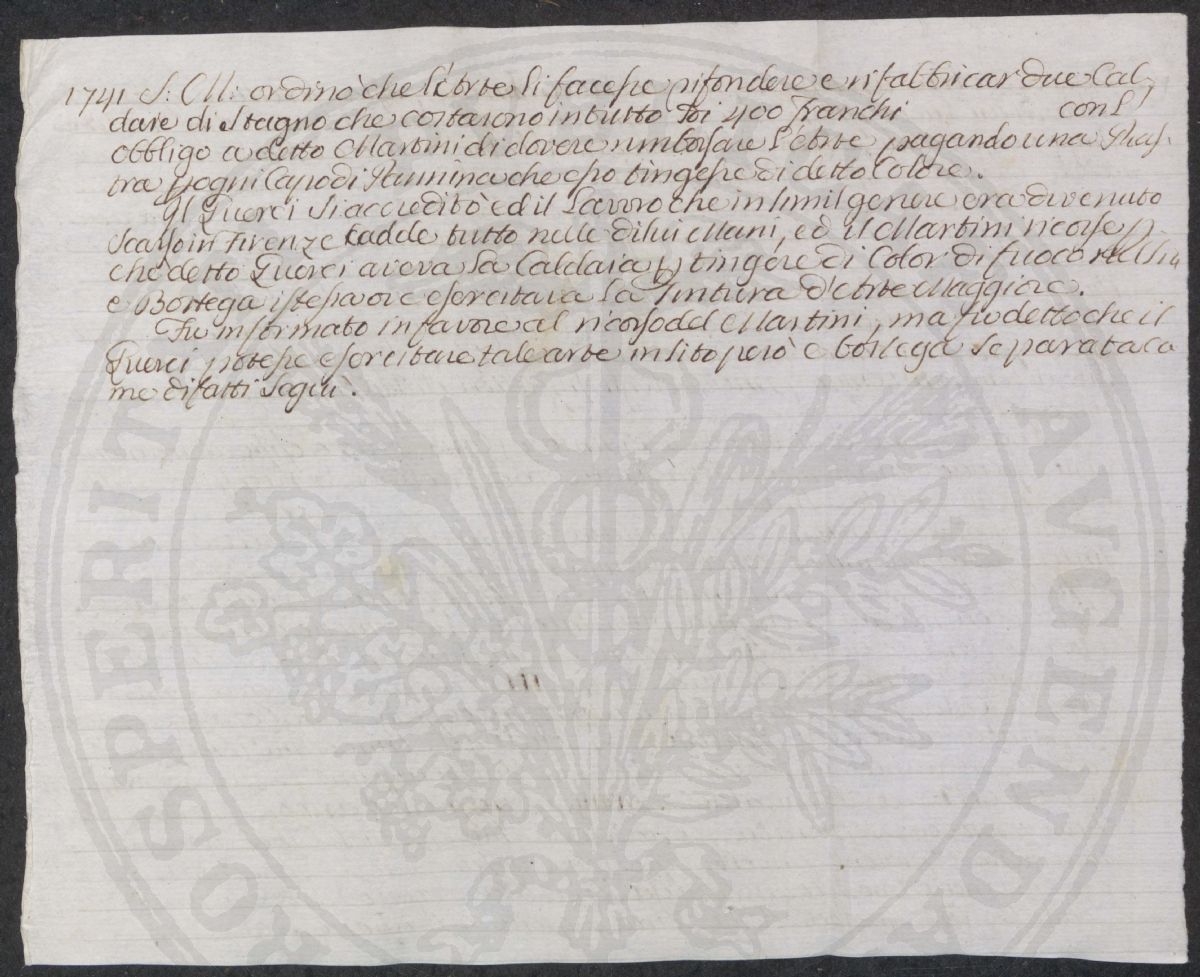 1741 S: M: ordinò che l'Arte si facesse rifondere e rifabbricar due Cal,
daie di Stagno che costarono in tutto 400 Franchi con l
obbligo a detto Martini di dovere rimborsare l'Arte pagando una Pias,
tra p ogni Capo di Stamina che esso tingesse di detto Colore.
Il Querci si accreditò ed il Lavoro che in simil genere era divenuto
scarso in Firenze cadde tutto nelle di lui Mani, ed il Martini ricorse p
che detto Querci aveva la Caldaia p tingere di Color di fuoco
e Bottega istessa ove esercitava la Tintura d'Arte Maggiore.
Fu informato in favore al ricorso del Martini, ma fu detto che il
Querci potesse esercitare tale arte in sito però e bottega separata co
me di fatti seguì.
PROSPERITA
AVGENDA